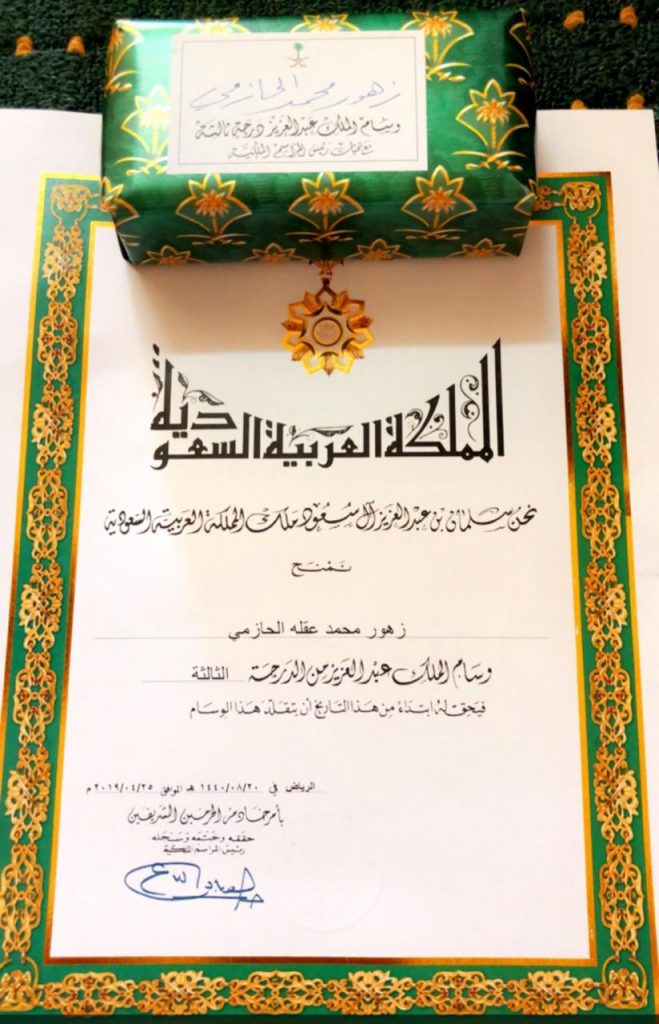 زهور محمد الحازمي
وسام الملك عبدالعزيز درجة ثالثة
مع تحيات رئيس المراسم الملكية
المملكة العربية السعودية
نحن سلمان بن عبدالعزيز آل سعود ملك المملكة العربية السعودية
نمنح
زهور محمد عقله الحازمي
وسام الملك عبدالعزيز من الدرجة الثالثة
فيحق له ابتداءً من هذا التاريخ أن يتقلد هذا الوسام
الرياض في ١٤٤٠/٠٨/٢٠ هـ الموافق ٢٠١٩/٠٤/٢٥ م
بأمر خادم الحرمين الشريفين
حققه وختمه وسجله
رئيس المراسم الملكية